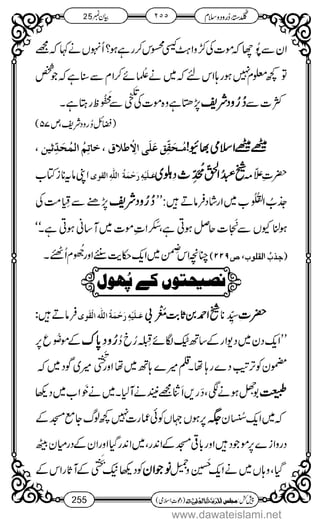 گلدستۂ درود و سلام ۲۵۵ بیان نمبر 25
ان سے پوچھا کہ موت کی کڑواہٹ کیسی محسوس کر رہے ہو؟ اُنہوں نے کہا کہ مجھے
تو کچھ معلوم نہیں ہو رہا اس لئے کہ میں نے عُلمائے کرام سے سنا ہے کہ جو شخص
کثرت سے دُرُود شریف پڑھتا ہے وہ موت کی تلخی سے محفوظ رہتا ہے۔
(فضائل درود شریف، ص ۵۷)
میٹھے میٹھے اسلامی بھائیو! مُحَقِّق عَلَی الْاِطلاق، خاتِمُ الْمُحَدِّثین،
حضرتِ علّامہ شیخ عبدُ الحق مُحَدِّث دِہلوی عَلَیْہِ رَحْمَۃُ اللہِ القَوی اپنی مایہ ناز کتاب
جذبُ القُلُوب میں ارشاد فرماتے ہیں: ’’دُرُود شریف پڑھنے سے قیامت کی
ہولناکیوں سے نجات حاصل ہوتی ہے، سکراتِ موت میں آسانی ہوتی ہے۔‘‘
(جذبُ القلوب، ص ۲۲۹) چنانچہ اس ضمن میں ایک حکایت سنئے اور جھوم اُٹھئے۔
نصیحتوں کے پھول
حضرت سیِّدنا شیخ احمد بن ثابت مَغْرِبی عَلَیْہِ رَحْمَۃُ اللہِ القَوی فرماتے ہیں:
’’ایک دن میں دیوار کے ساتھ ٹیک لگائے قبلہ رُخ دُرُودِ پاک کے موضوع پر
مضمون کو ترتیب دے رہا تھا۔ قلم میرے ہاتھ میں تھا اور تختی میری گود میں کہ
طبیعت بوجھل ہونے لگی، دریں اثنا مجھے نیند نے آلیا۔ میں نے خواب میں دیکھا
کہ میں ایک سنسان جگہ پر ہوں جہاں کوئی عمارت نہیں کچھ لوگ جامع مسجد کے
دروازے پر موجود ہیں اور باقی مسجد کے اندر، میں اندر گیا اور ان کے درمیان بیٹھ
گیا، وہاں میں نے ایک حسین و جمیل نوجوان کو دیکھا کہ نیکی کے آثار اُس کے
255
پیش کش: مجلس اَلْمَدِیْنَۃُ الْعِلْمِیَّۃ (دعوتِ اسلامی)
www.dawateislami.net